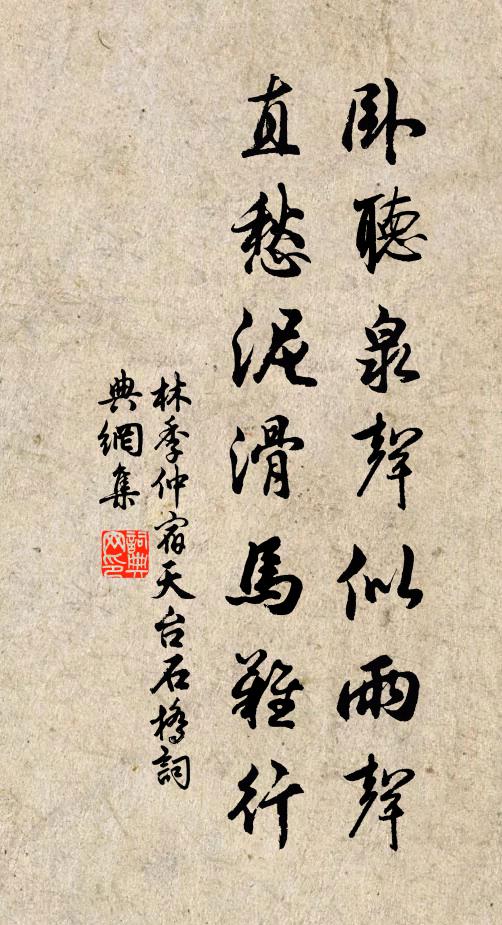 卧聽泉聲似雨聲
直愁泥滑馬難行
林季仲宿天台石橋詞
典網集
詞典网印